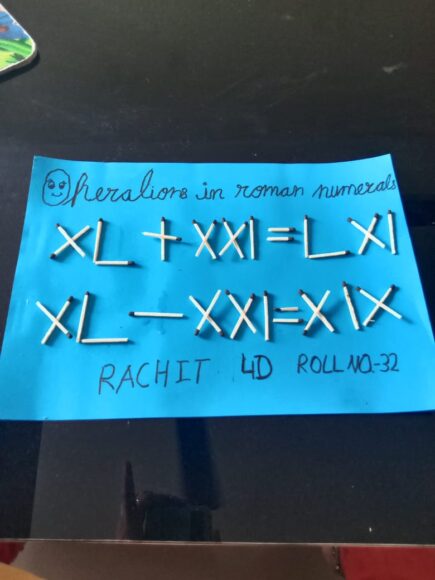 Operations in roman numerals
XL + XXI = LXI
XL - XXI = XIX
RACHIT 4D ROLL NO.-32